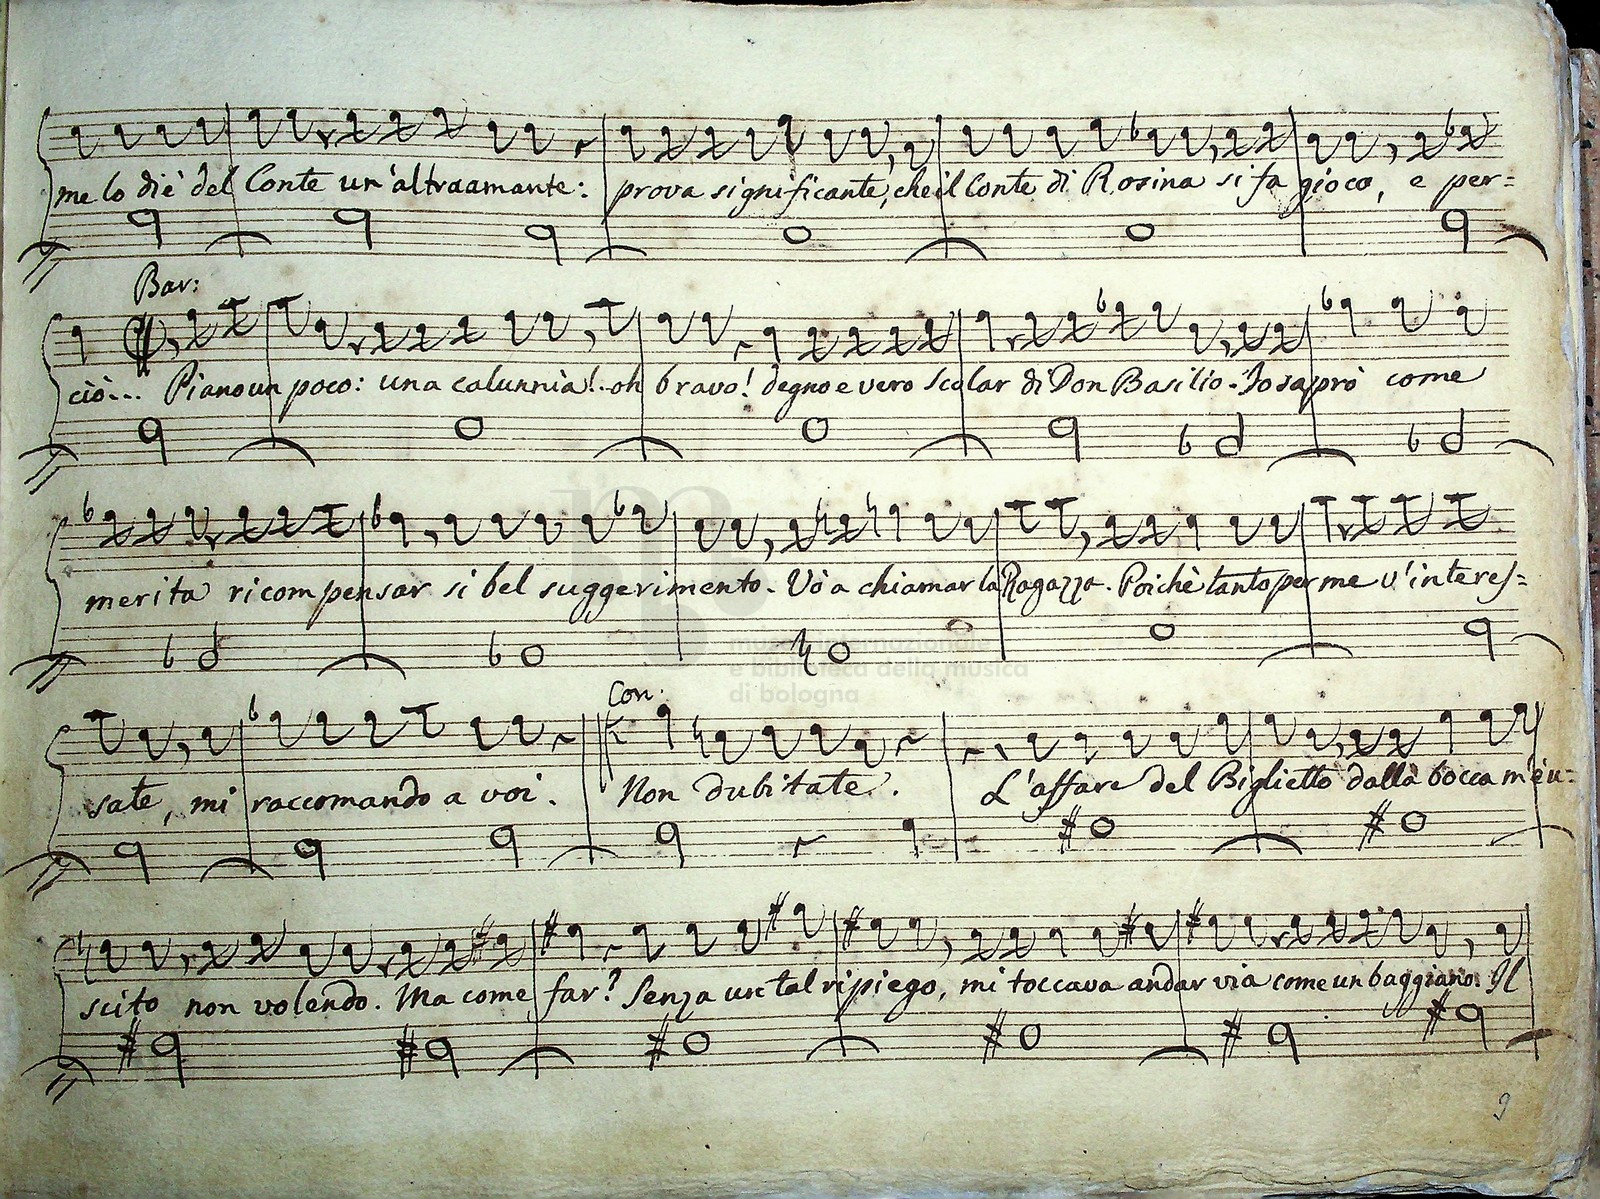 me lo diè del Conte un'altra amante: prova significante, che il Conte di Rosina si fa gioco, e per=
Bar:
ciò... Piano un poco: una calunnia!.. oh bravo! degno e vero Scolar di Don Basilio. Io saprò come
merita ricompensar si bel suggerimento. Vò a chiamar la Ragazza. Poichè tanto per me v'interes=
museo internazionale
e biblioteca della musica
di bologna
Con:
sate, mi raccomando a voi. Non dubitate. L'affare del Biglietto dalla bocca m'è u=
scito non volendo. Ma come far? Senza un tal ripiego, mi toccava andar via come un baggiano. Il
9